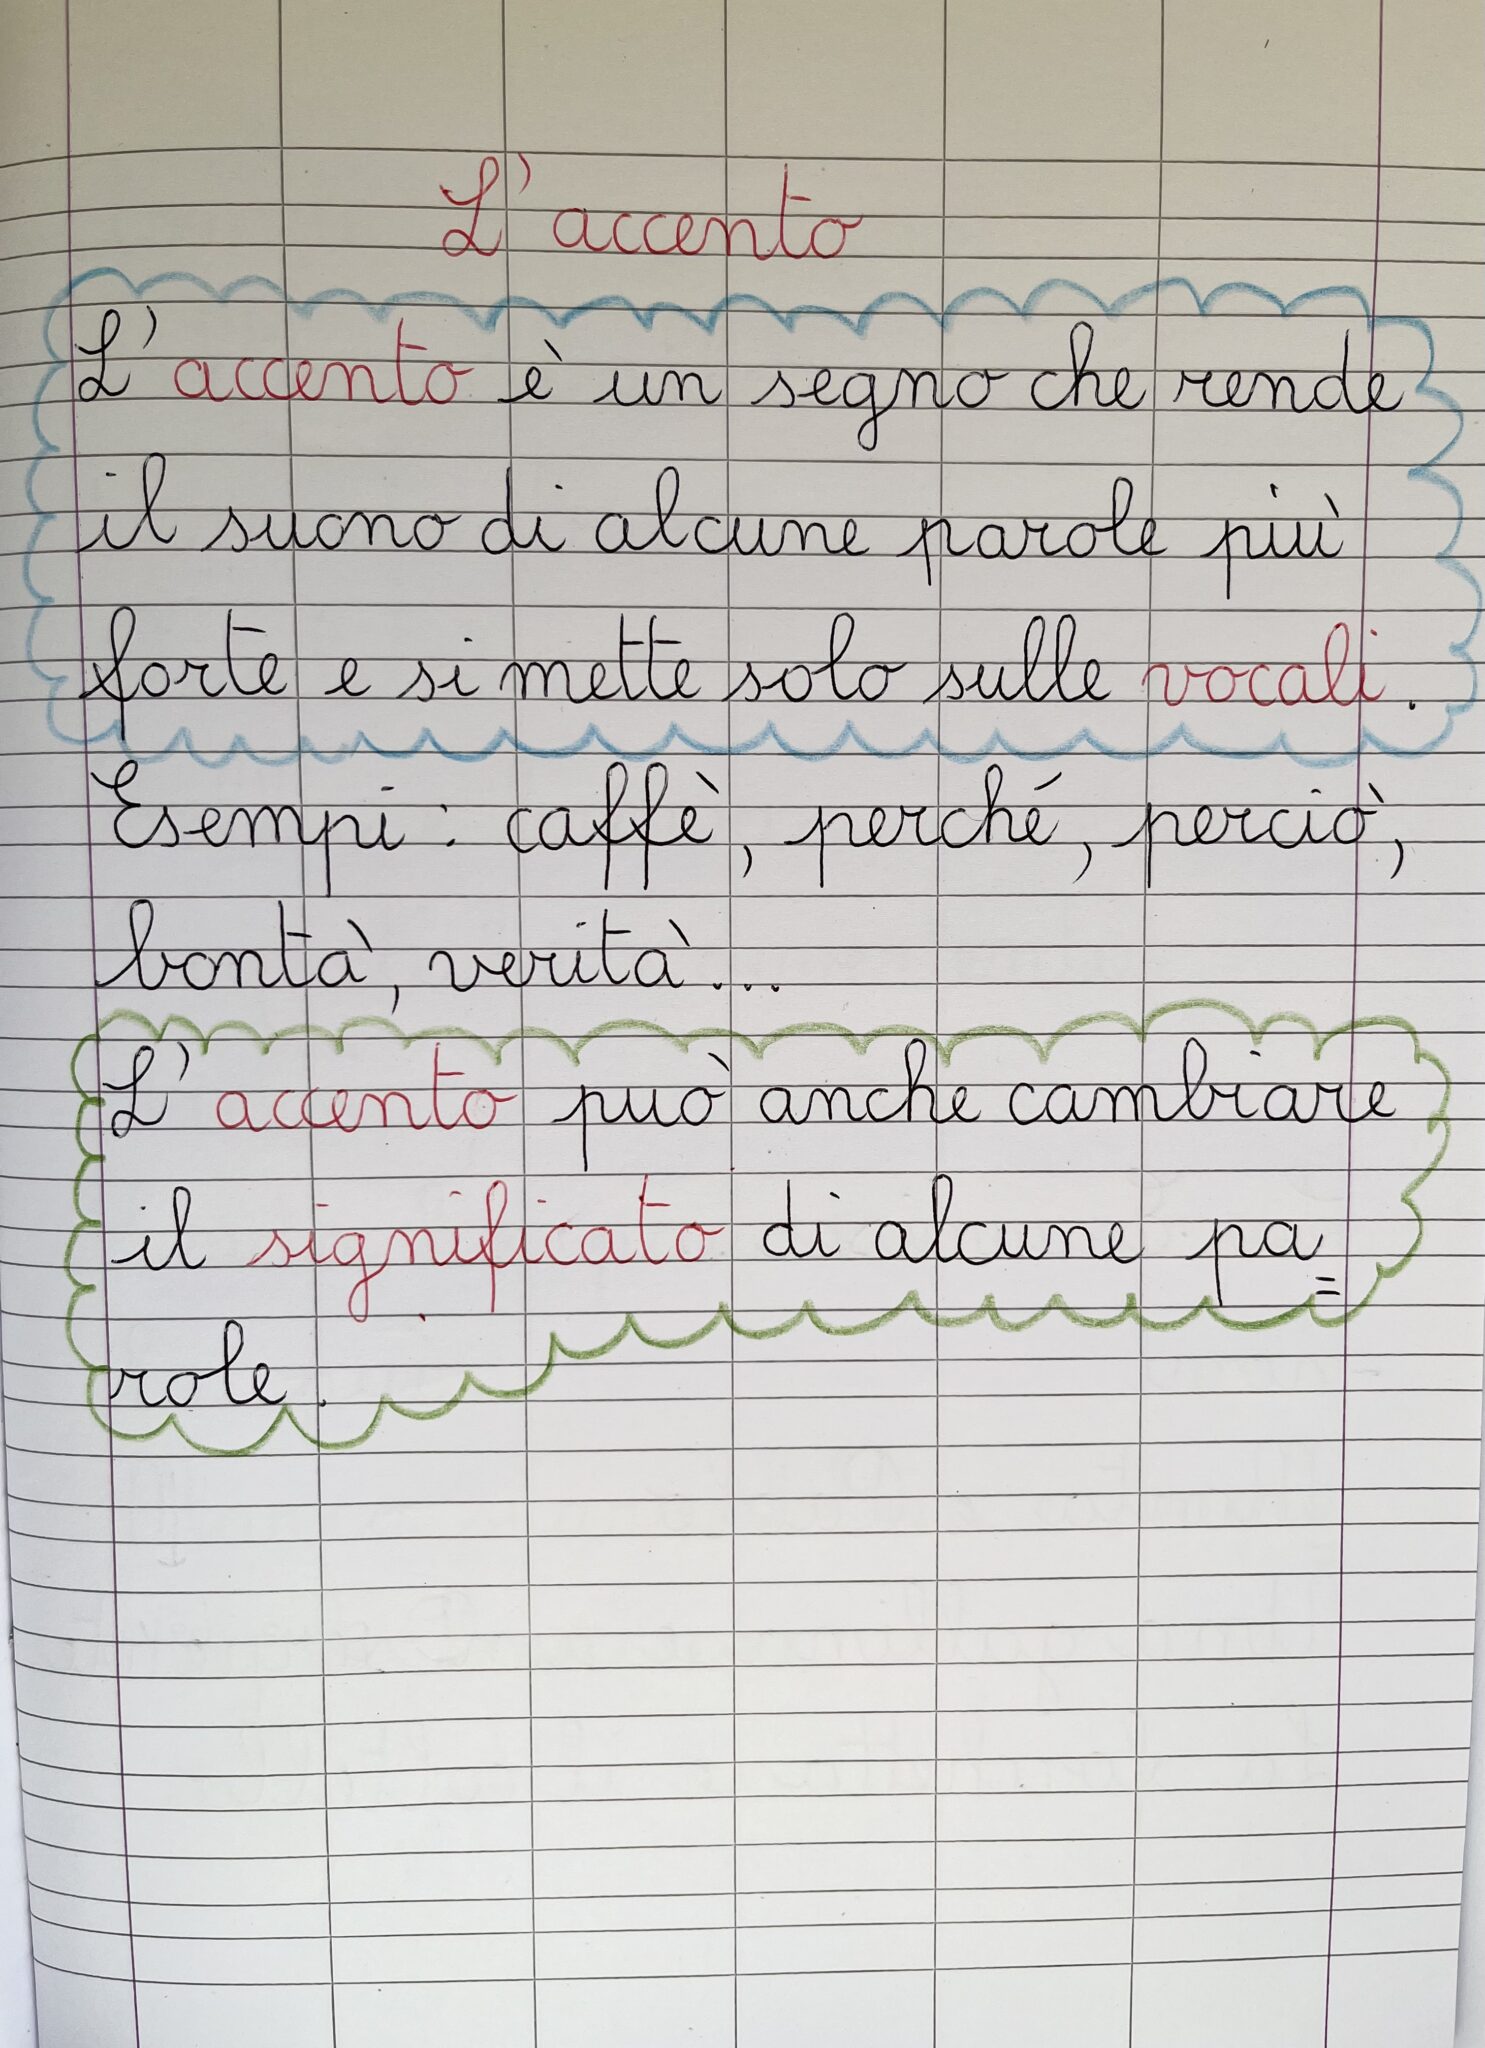 L'accento
L'accento è un segno che rende
il suono di alcune parole più
forte e si mette solo sulle vocali.
Esempi: caffè, perché, perciò,
bontà, verità...
L'accento può anche cambiare
il significato di alcune pa=
role.